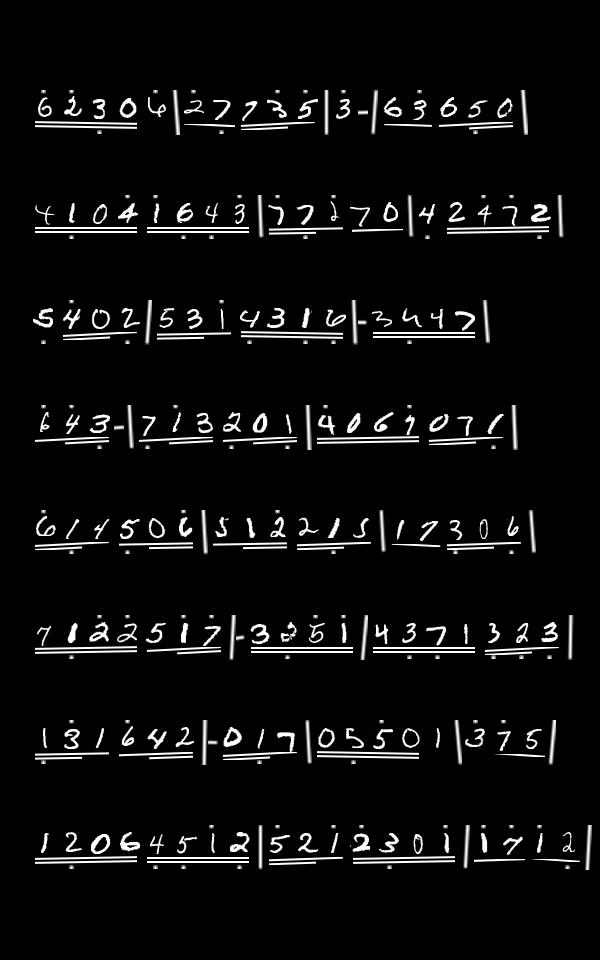 6 2 3 0 6 | 2 7 7 3 5 | 3 - | 6 3 6 5 0 |
4 1 0 4 1 6 4 3 | 7 7 2 7 0 | 4 2 4 7 2 |
5 4 0 2 | 5 3 1 4 3 1 6 | - 3 4 4 7 |
6 4 3 - | 7 1 3 2 0 1 | 4 0 6 1 0 7 1 |
6 1 4 5 0 6 | 5 1 2 2 1 5 | 1 7 3 0 6 |
7 1 2 2 5 1 7 | - 3 3 5 1 | 4 3 7 1 3 2 3 |
1 3 1 6 4 2 | - 0 1 7 | 0 5 5 0 1 | 3 7 5 |
1 2 0 6 4 5 1 2 | 5 2 1 2 3 0 1 | 1 7 1 2 |